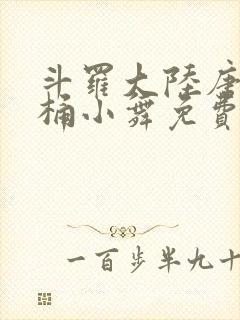 斗羅大陸唐
桶小舞免費
一百步半九十